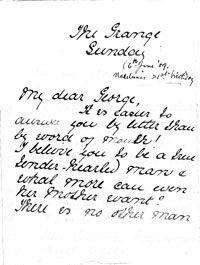 The Grange
Sunday
(6th June '09.
Madeline's 21st birthday)
My dear George,
It is easier to
answer you by letter than
by word of mouth!
I believe you to be a true
tender-hearted man &
what more can even
her mother want?
There is no other man